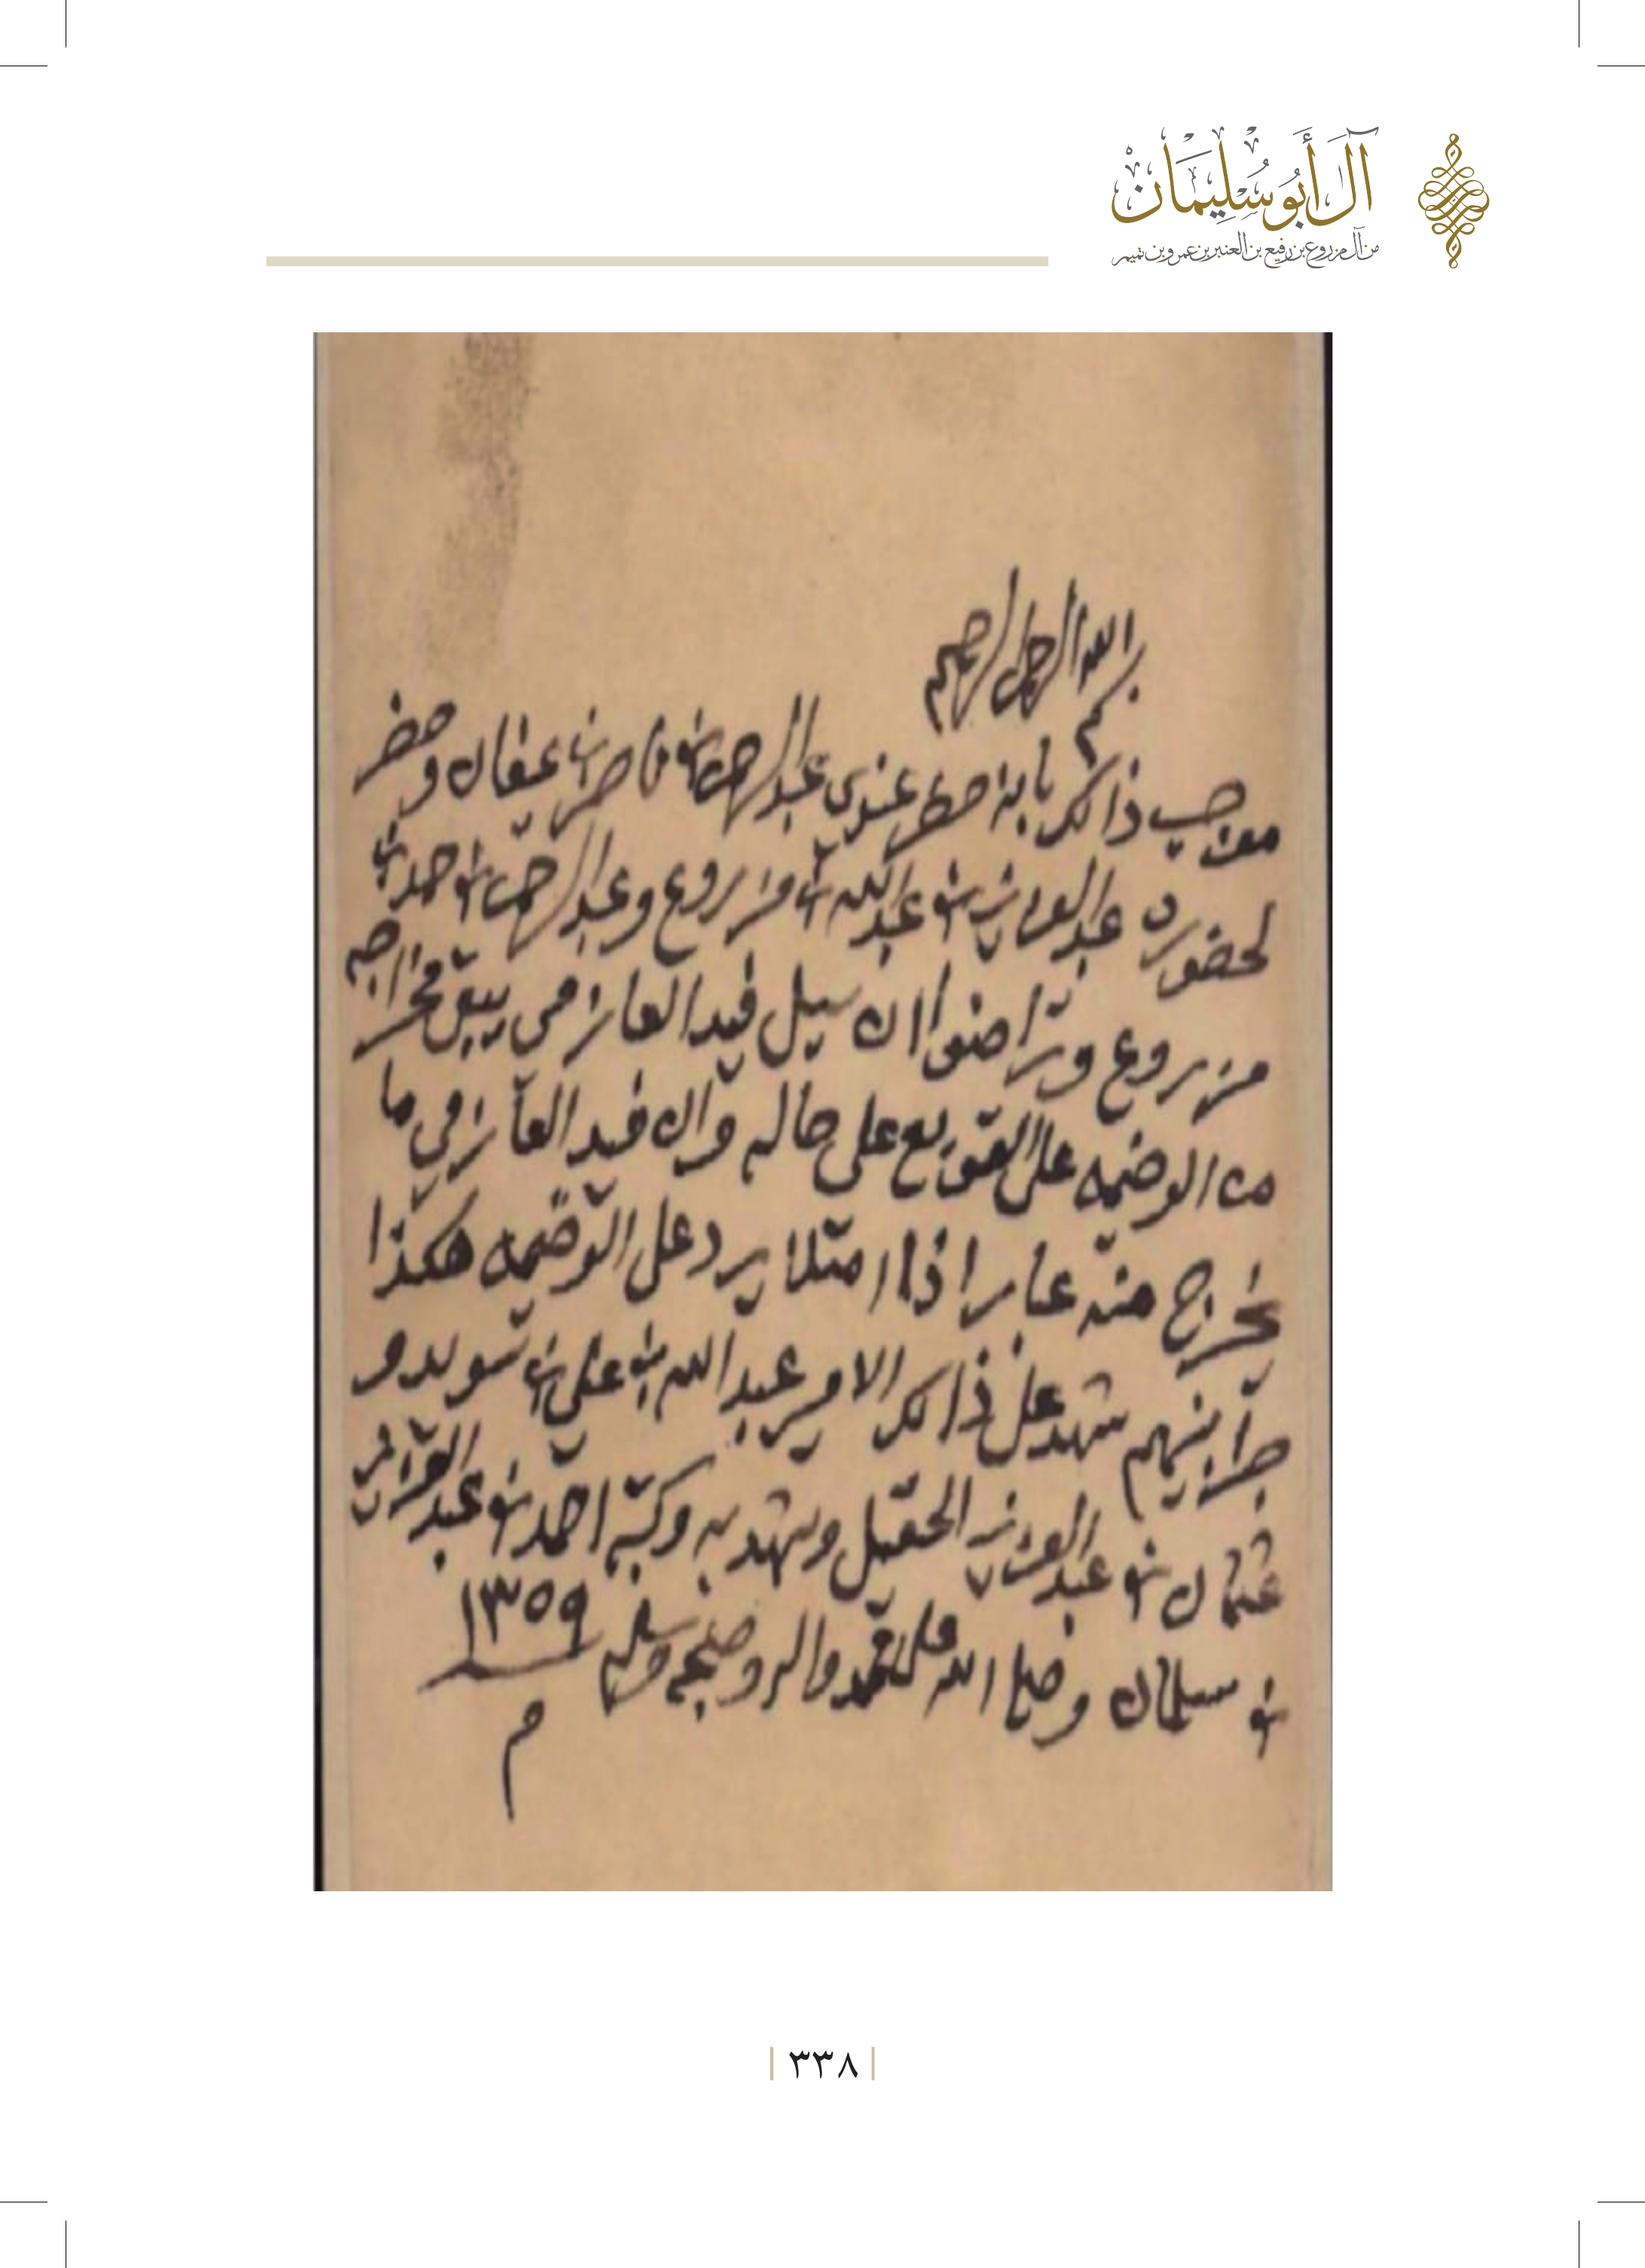 آل أبو سليمان
من آل مزروع بن رفيع بن العنبر بن عمرو بن تميم
بسم الله الرحمن الرحيم
موجب ذالك بانه حظر عندي عبدالرحمن بن ناصر بن عيفان وحضر
لحضوره عبدالعزيز بن عبدالله بن مزروع وعبدالرحمن بن حمد بن
مزروع وتراضوا ان سيل فيد العازمي يبق مخراجه
من الوضيمه على على حاله وان فيد العازمي ما
يخرج منه عابر اذا امتلا يرد على الوضيمه هكذا
جرا بينهم شهد على ذالك الامير عبدالله بن علي بن سويد و
عثمان بن عبدالعزيز الحقيل وشهد به وكتبه احمد بن عبدالعزيز
بن سليمان وصلى الله على محمد واله وصحبه وسلم ١٣٥٩
م
٣٣٨